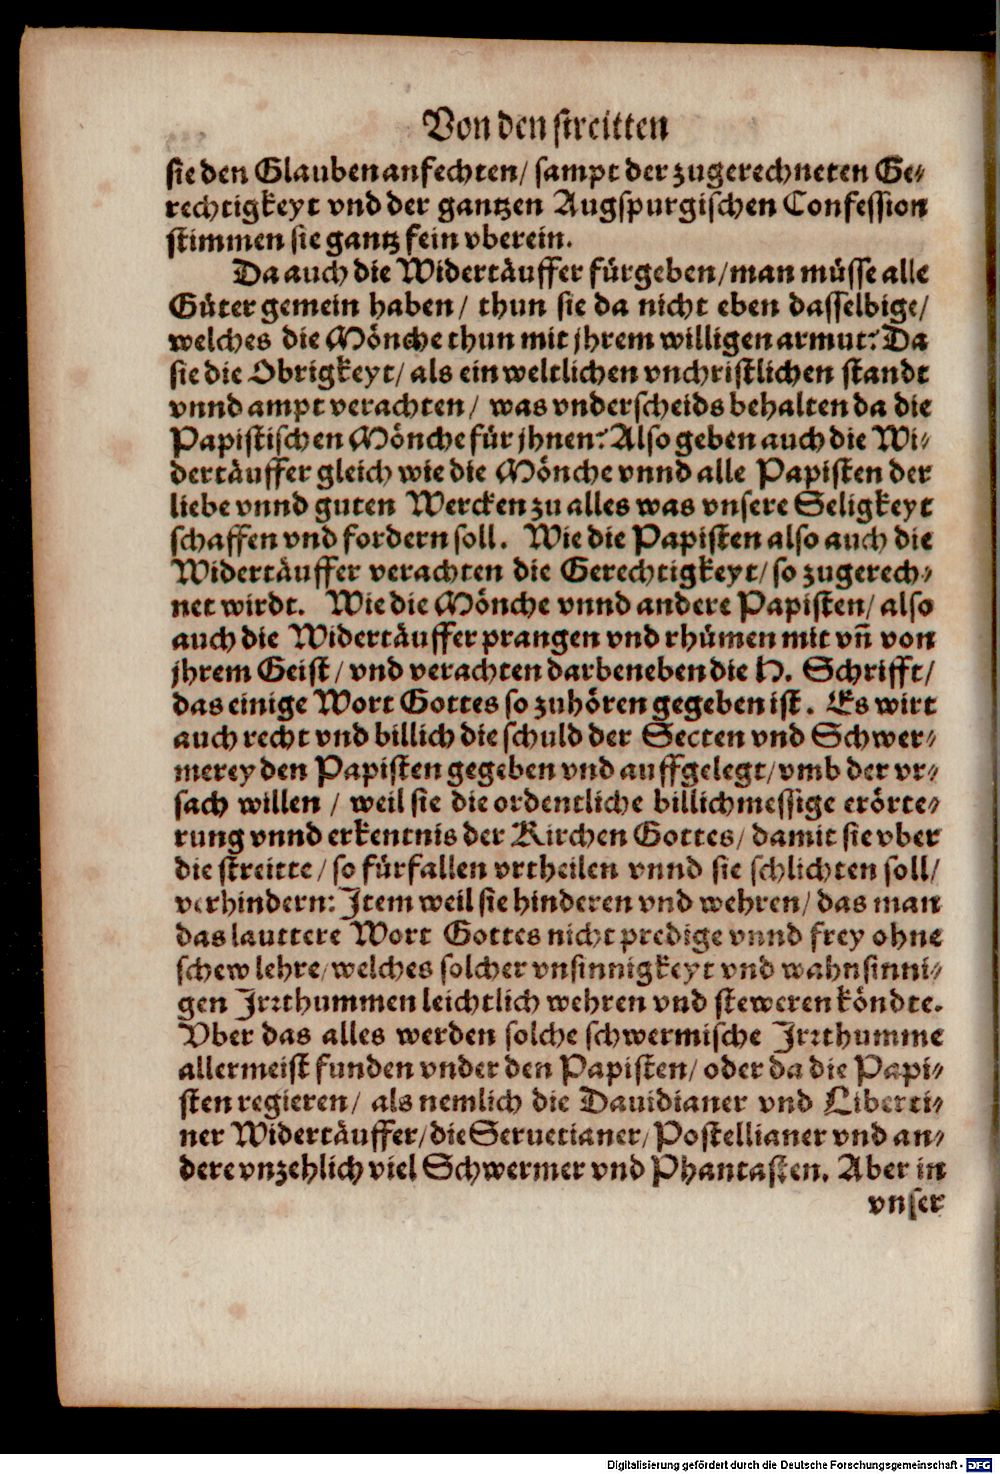 Von den streitten
sie den Glauben anfechten/ sampt der zugerechneten Ge-
rechtigkeyt vnd der gantzen Augspurgischen Confession
stimmen sie gantz fein vberein.
Da auch die Widertäuffer fürgeben/man müsse alle
Güter gemein haben/ thun sie da nicht eben dasselbige/
welches die Mönche thun mit jhrem willigen armut? Da
sie die Obrigkeyt/ als ein weltlichen vnchristlichen standt
vnnd ampt verachten/ was vnderscheids behalten da die
Papistischen Mönche für jhnen? Also geben auch die Wi-
dertäuffer gleich wie die Mönche vnnd alle Papisten der
liebe vnnd guten Wercken zu alles was vnsere Seligkeyt
schaffen vnd fordern soll. Wie die Papisten also auch die
Widertäuffer verachten die Gerechtigkeyt/ so zugerech-
net wirdt. Wie die Mönche vnnd andere Papisten/ also
auch die Widertäuffer prangen vnd rhümen mit vn̄ von
jhrem Geist/ vnd verachten darbeneben die H. Schrifft/
das einige Wort Gottes so zuhören gegeben ist. Es wirt
auch recht vnd billich die schuld der Secten vnd Schwer-
merey den Papisten gegeben vnd auffgelegt/ vmb der vr-
sach willen/ weil sie die ordentliche billichmessige erörte-
rung vnnd erkentnis der Kirchen Gottes/ damit sie vber
die streitte/ so fürfallen vrtheilen vnnd sie schlichten soll/
verhindern: Item weil sie hinderen vnd wehren/ das man
das lauttere Wort Gottes nicht predige vnnd frey ohne
schew lehre/ welches solcher vnsinnigkeyt vnd wahnsinni-
gen Irꝛthummen leichtlich wehren vnd steweren köndte.
Vber das alles werden solche schwermische Irꝛthumme
allermeist funden vnder den Papisten/ oder da die Papi-
sten regieren/ als nemlich die Dauidianer vnd Liberti-
ner Widertäuffer/ die Seruetianer/ Postellianer vnd an-
dere vnzehlich viel Schwermer vnd Phantasten. Aber in
vnser
Digitalisierung gefördert durch die Deutsche Forschungsgemeinschaft - DFG